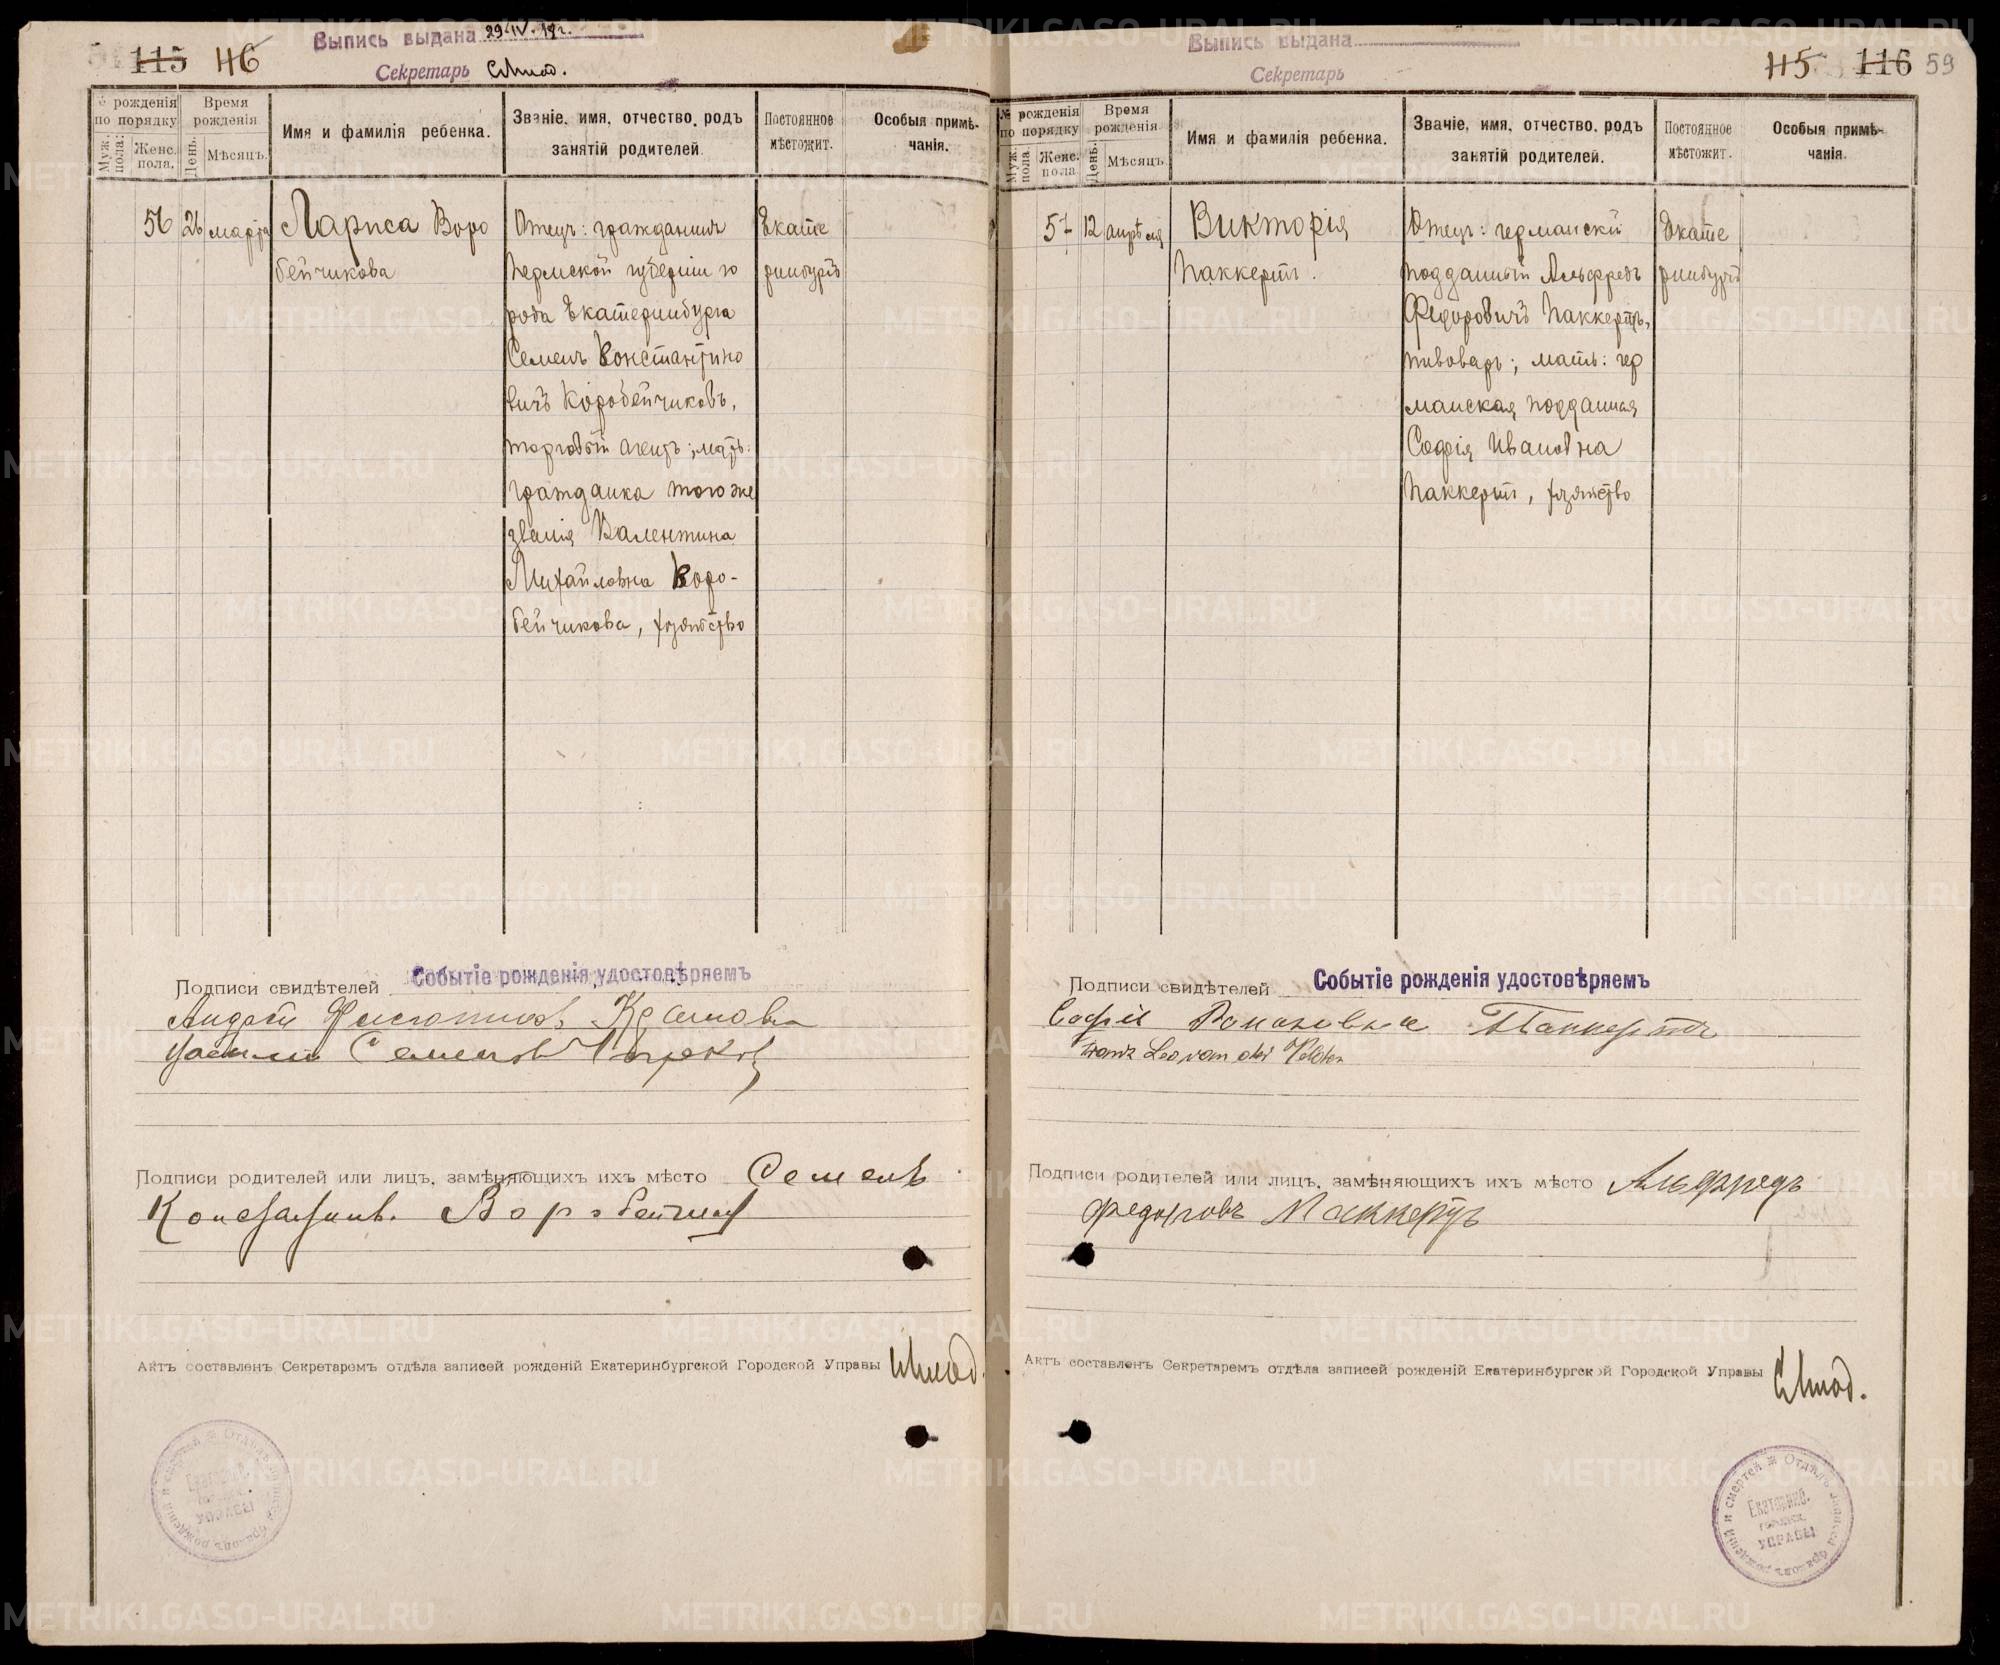 115 116
Выпись выдана 29/IV.19г.
Секретарь
№ рожденія по порядку
Муж. пола.
Женс. пола.
Время рожденія
День.
Мѣсяцъ.
Имя и фамилія ребенка.
Званіе, имя, отчество, родъ
занятій родителей.
Постоянное
мѣстожит.
Особыя примѣ-
чанія.
56 26 марта Лариса Воро
бейчикова
Отецъ: гражданинъ
Пермской губерніи го
рода Екатеринбурга
Семенъ Константино
вичъ Воробейчиковъ,
торговый агентъ; мать:
гражданка того же
званія Валентина
Михайловна Воро-
бейчикова, хозяйство
Екате
ринбургъ
Событіе рожденія удостовѣряемъ
Подписи свидѣтелей
Подписи родителей или лицъ, замѣняющихъ ихъ мѣсто Семенъ
Константинов. Воробейчиков
Актъ составленъ Секретаремъ отдѣла записей рожденій Екатеринбургской Городской Управы
Отдѣлъ записи браковъ, рожденій и смертей
Екатеринб.
городск.
УПРАВЫ
115 116 59
Выпись выдана
Секретарь
№ рожденія
по порядку
Муж. пола.
Женс. пола
Время
рожденія
День.
Мѣсяцъ.
Имя и фамилія ребенка.
Званіе, имя, отчество, родъ
занятій родителей.
Постоянное
мѣстожит.
Особыя примѣ-
чанія.
57 12 апрѣля Викторія
Паккертъ.
Отецъ: германскій
подданный Альфредъ
Федоровичъ Паккертъ,
пивоваръ; мать: гер
манская подданная
Софія Ивановна
Паккертъ, хозяйство
Екате
ринбургъ
Событіе рожденія удостовѣряемъ
Подписи свидѣтелей
Софія Романовна Паккертъ
Подписи родителей или лицъ, замѣняющихъ ихъ мѣсто Альфредъ
Федоровъ Паккертъ
Актъ составленъ Секретаремъ отдѣла записей рожденій Екатеринбургской Городской Управы
Отдѣлъ записи браковъ, рожденій и смертей
Екатеринб.
городск.
УПРАВЫ
METRIKI.GASO-URAL.RU